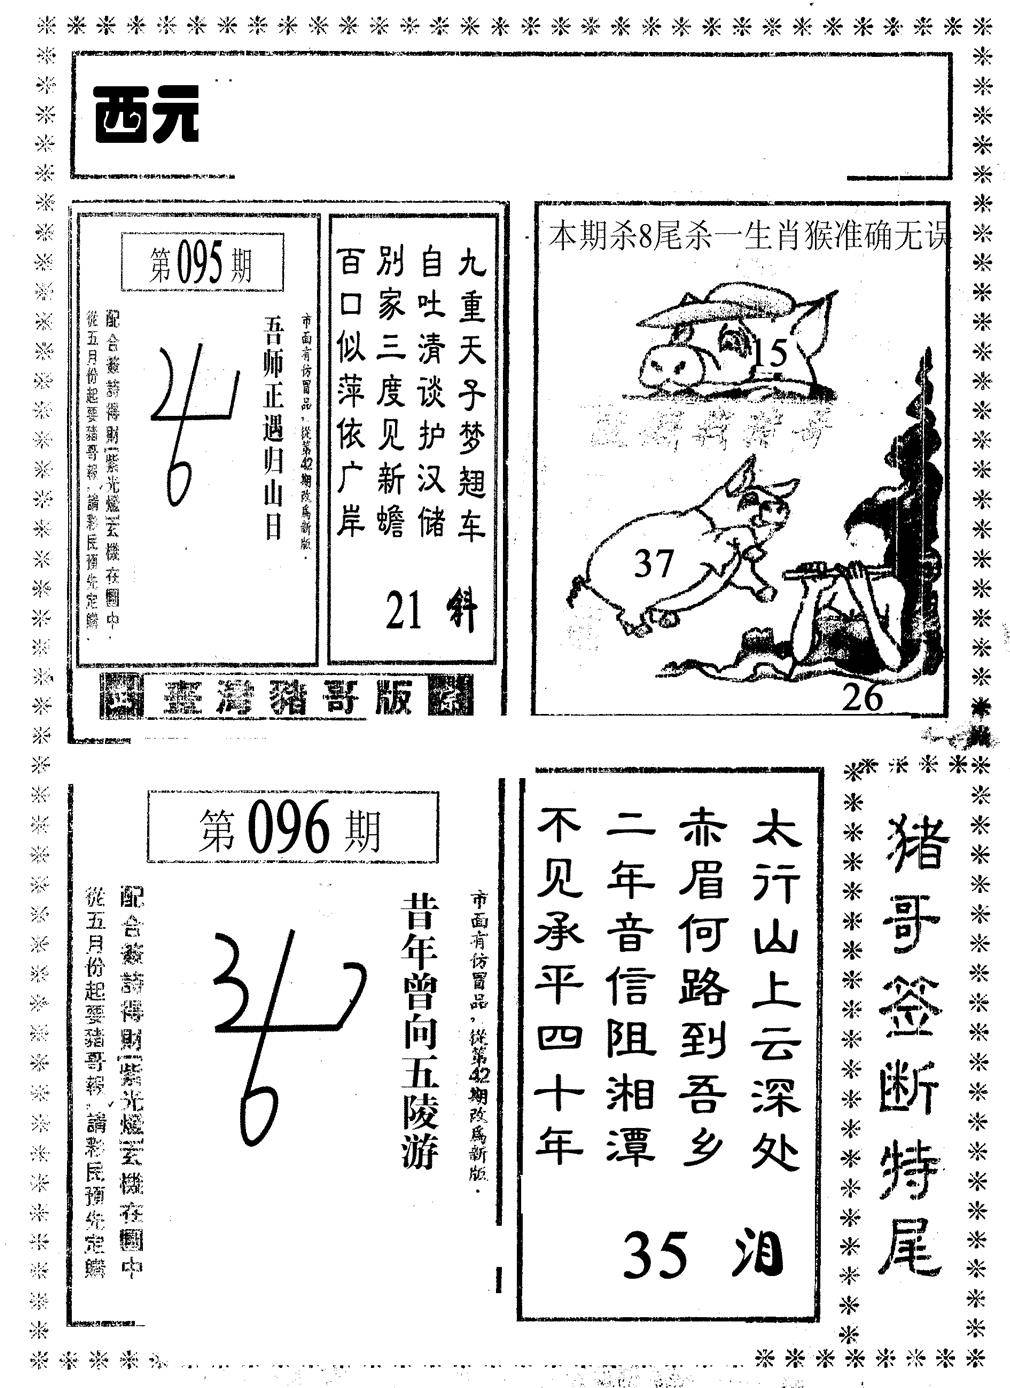 西元
第095期
市面有仿冒品，從第42期改爲新版．
吾师正遇归山日
配合簽詩得財
紫光燈玄機在圖中．
從五月份起要豬哥報．請彩民預先定購．
九重天子梦翘车
自吐清谈护汉储
别家三度见新蟾
百口似萍依广岸
21 斜
臺灣豬哥版
本期杀8尾杀一生肖猴准确无误
15
37
26
第096期
市面有仿冒品，從第42期改爲新版．
昔年曾向五陵游
配合簽詩得財
紫光燈玄機在圖中
從五月份起要豬哥報．請彩民預先定購
太行山上云深处
赤眉何路到吾乡
二年音信阻湘潭
不见承平四十年
35 泪
猪哥签断特尾